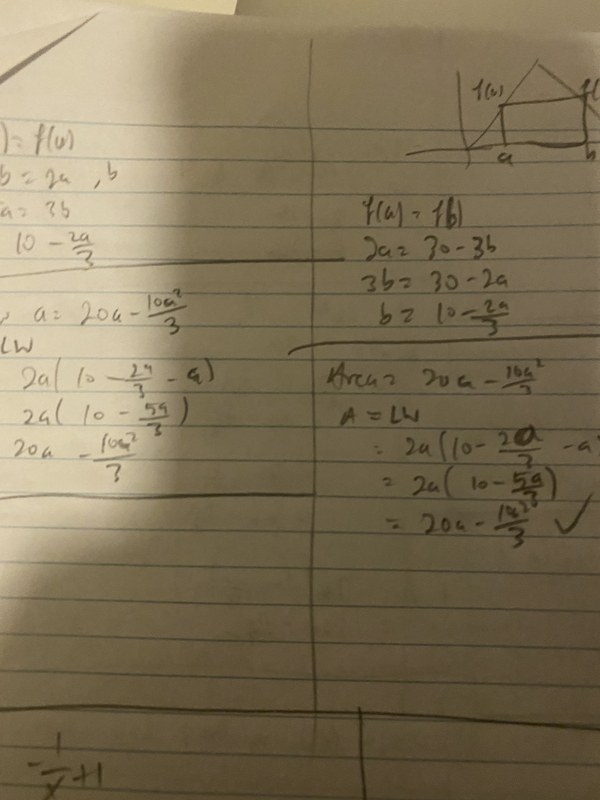 ) = f(b)
b = 2a, b
a = 3b
10 - 2a/3
a = 20a - 10a²/3
LW
2a(10 - 2a/3 - a)
2a(10 - 5a/3)
20a - 10a²/3
-1/x + 1
f(a)
f(
a
b
f(a) = f(b)
2a = 30 - 3b
3b = 30 - 2a
b = 10 - 2a/3
Area = 20a - 10a²/3
A = LW
= 2a(10 - 2a/3 - a)
= 2a(10 - 5a/3)
= 20a - 10a²/3 ✓